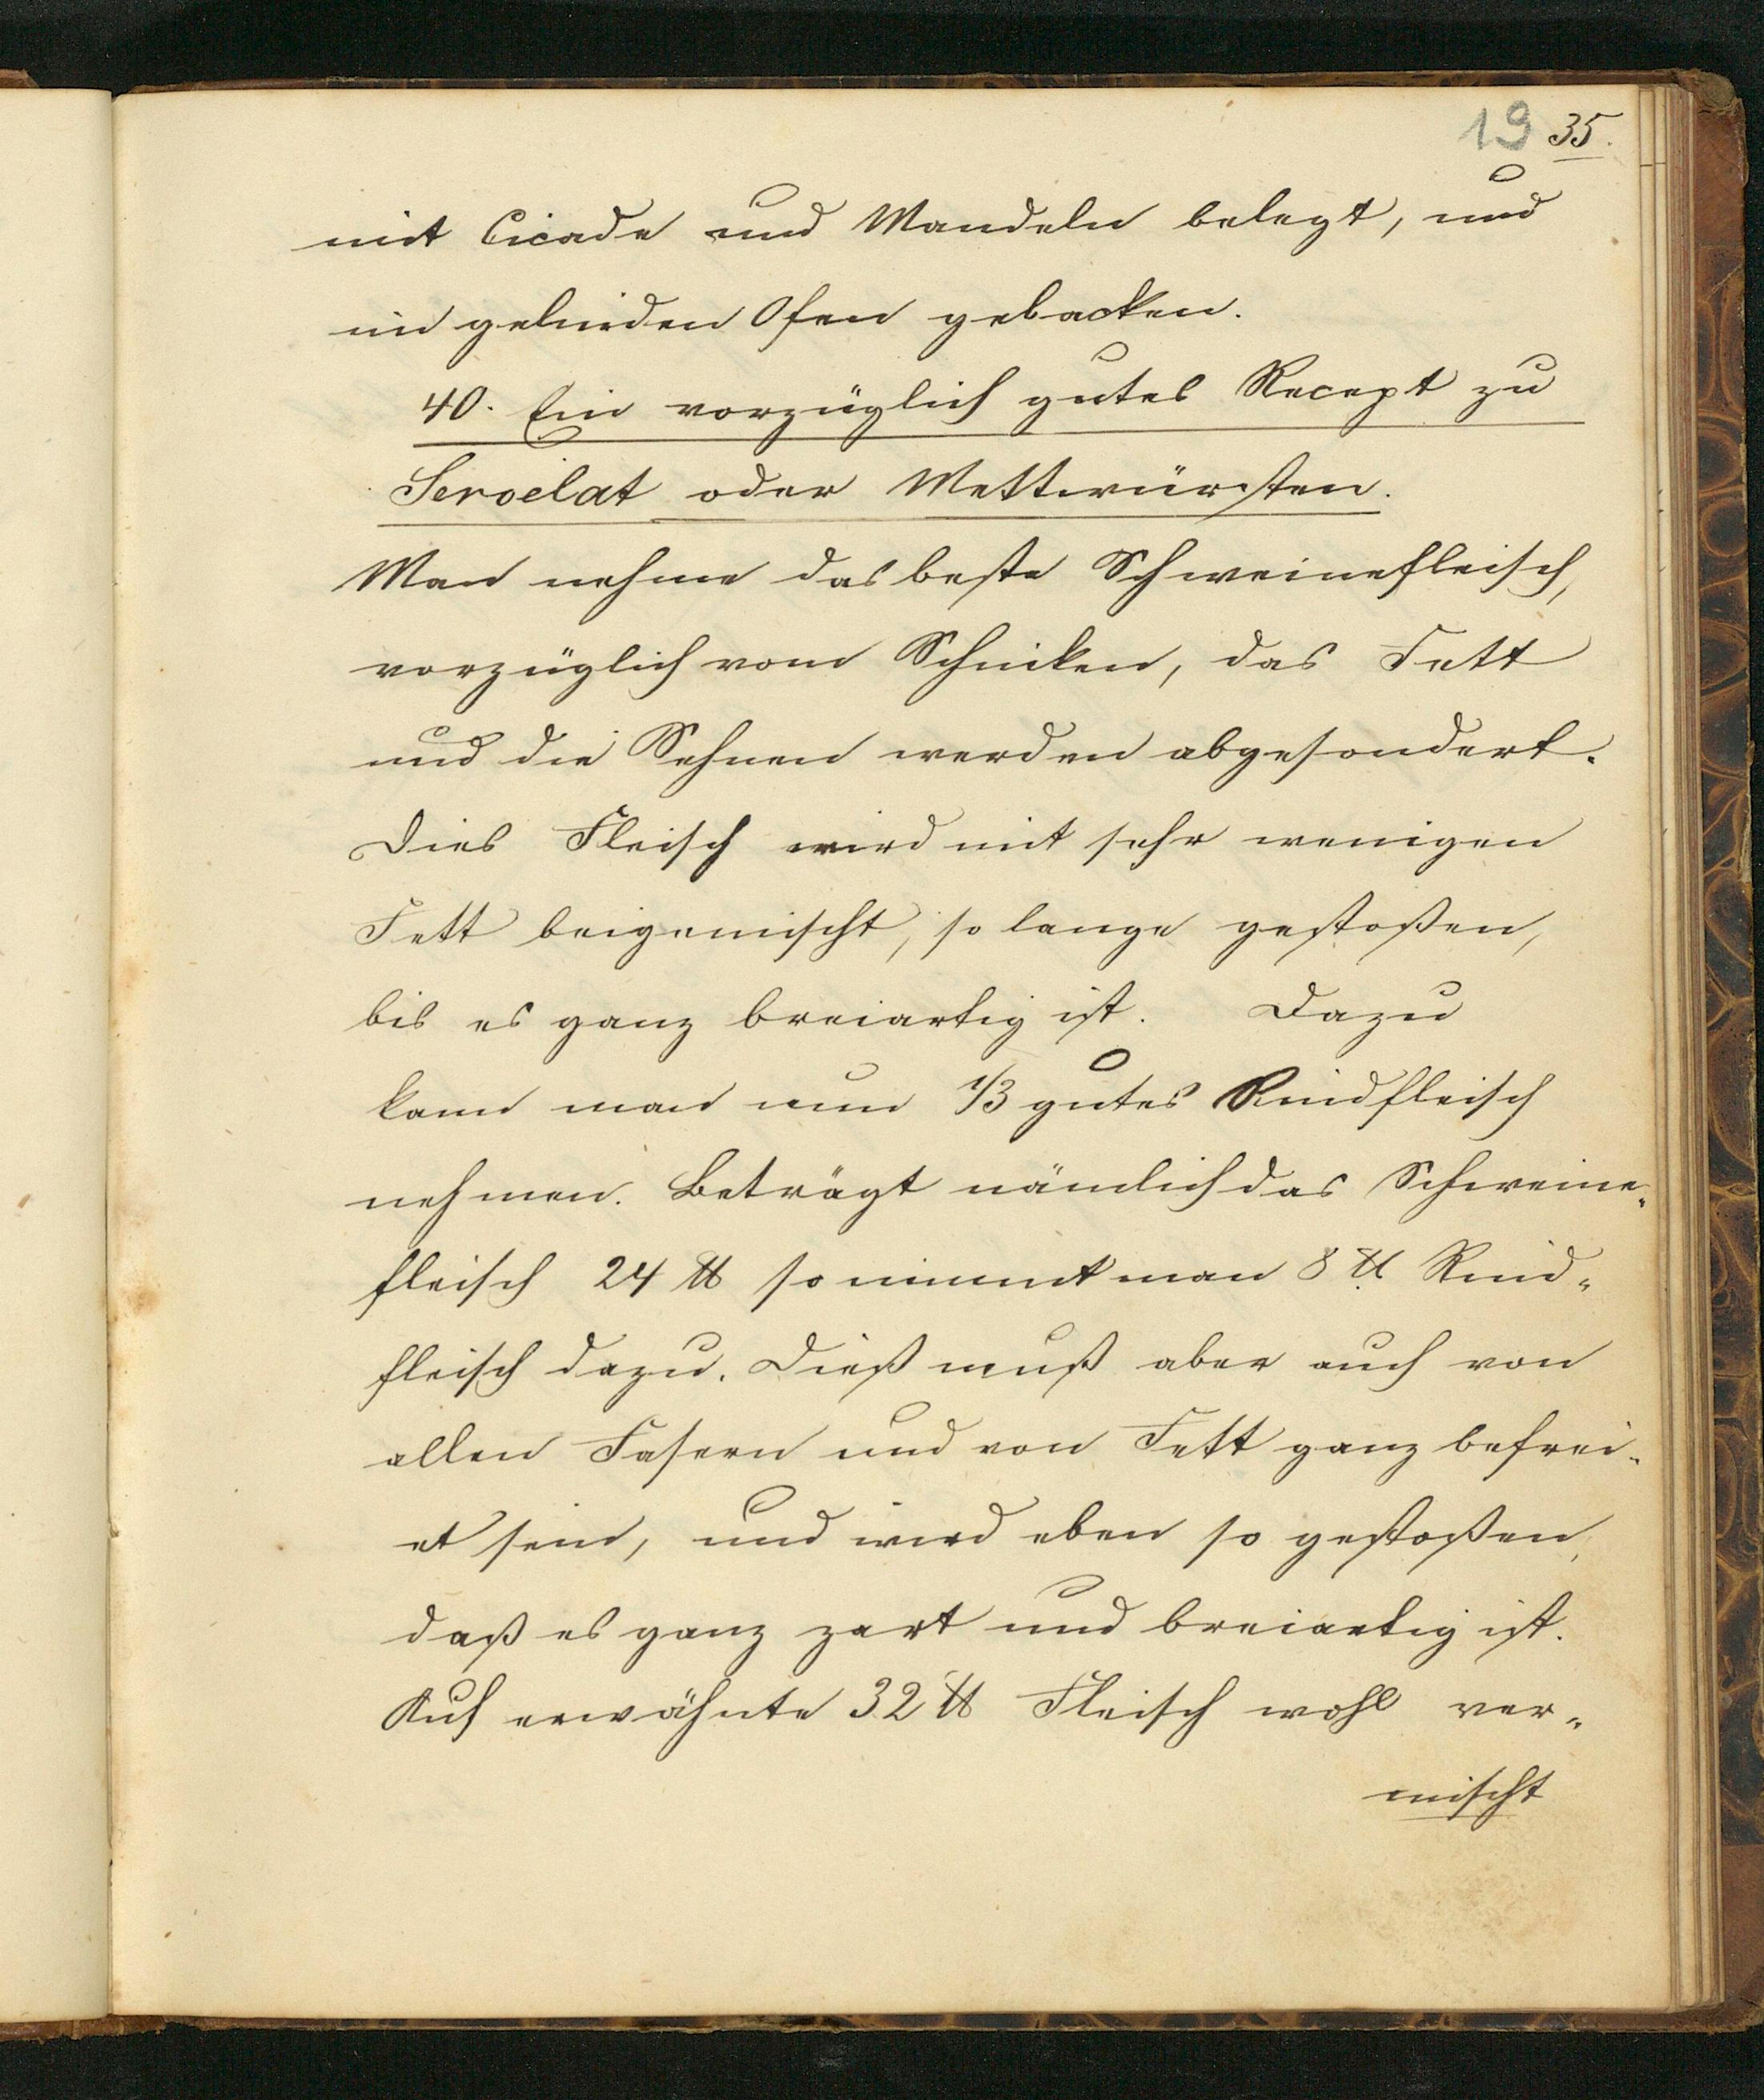 19 35.
mit Cicade und Mandeln belegt, und
im gelinden Ofen gebacken.
40. Ein vorzüglich gutes Recept zu
Servelat oder Mettwürsten.
Man nehme das beste Schweinefleisch,
vorzüglich vom Schinken, das Fett
und die Sehnen werden abgesondert.
Dies Fleisch wird mit sehr wenigen
Fett beigemischt, so lange gestoßen,
bis es ganz breiartig ist. Dazu
kann man nun 1/3 gutes Rindfleisch
nehmen. Beträgt nämlich das Schweine-
fleisch 24 ℔ so nimmt man 8 ℔ Rind-
fleisch dazu. Dieß muß aber auch von
allen Fasern und von Fett ganz befrei-
et sein, und wird eben so gestoßen,
daß es ganz zart und breiartig ist.
Auf erwähnte 32 ℔ Fleisch wohl ver-
mischt